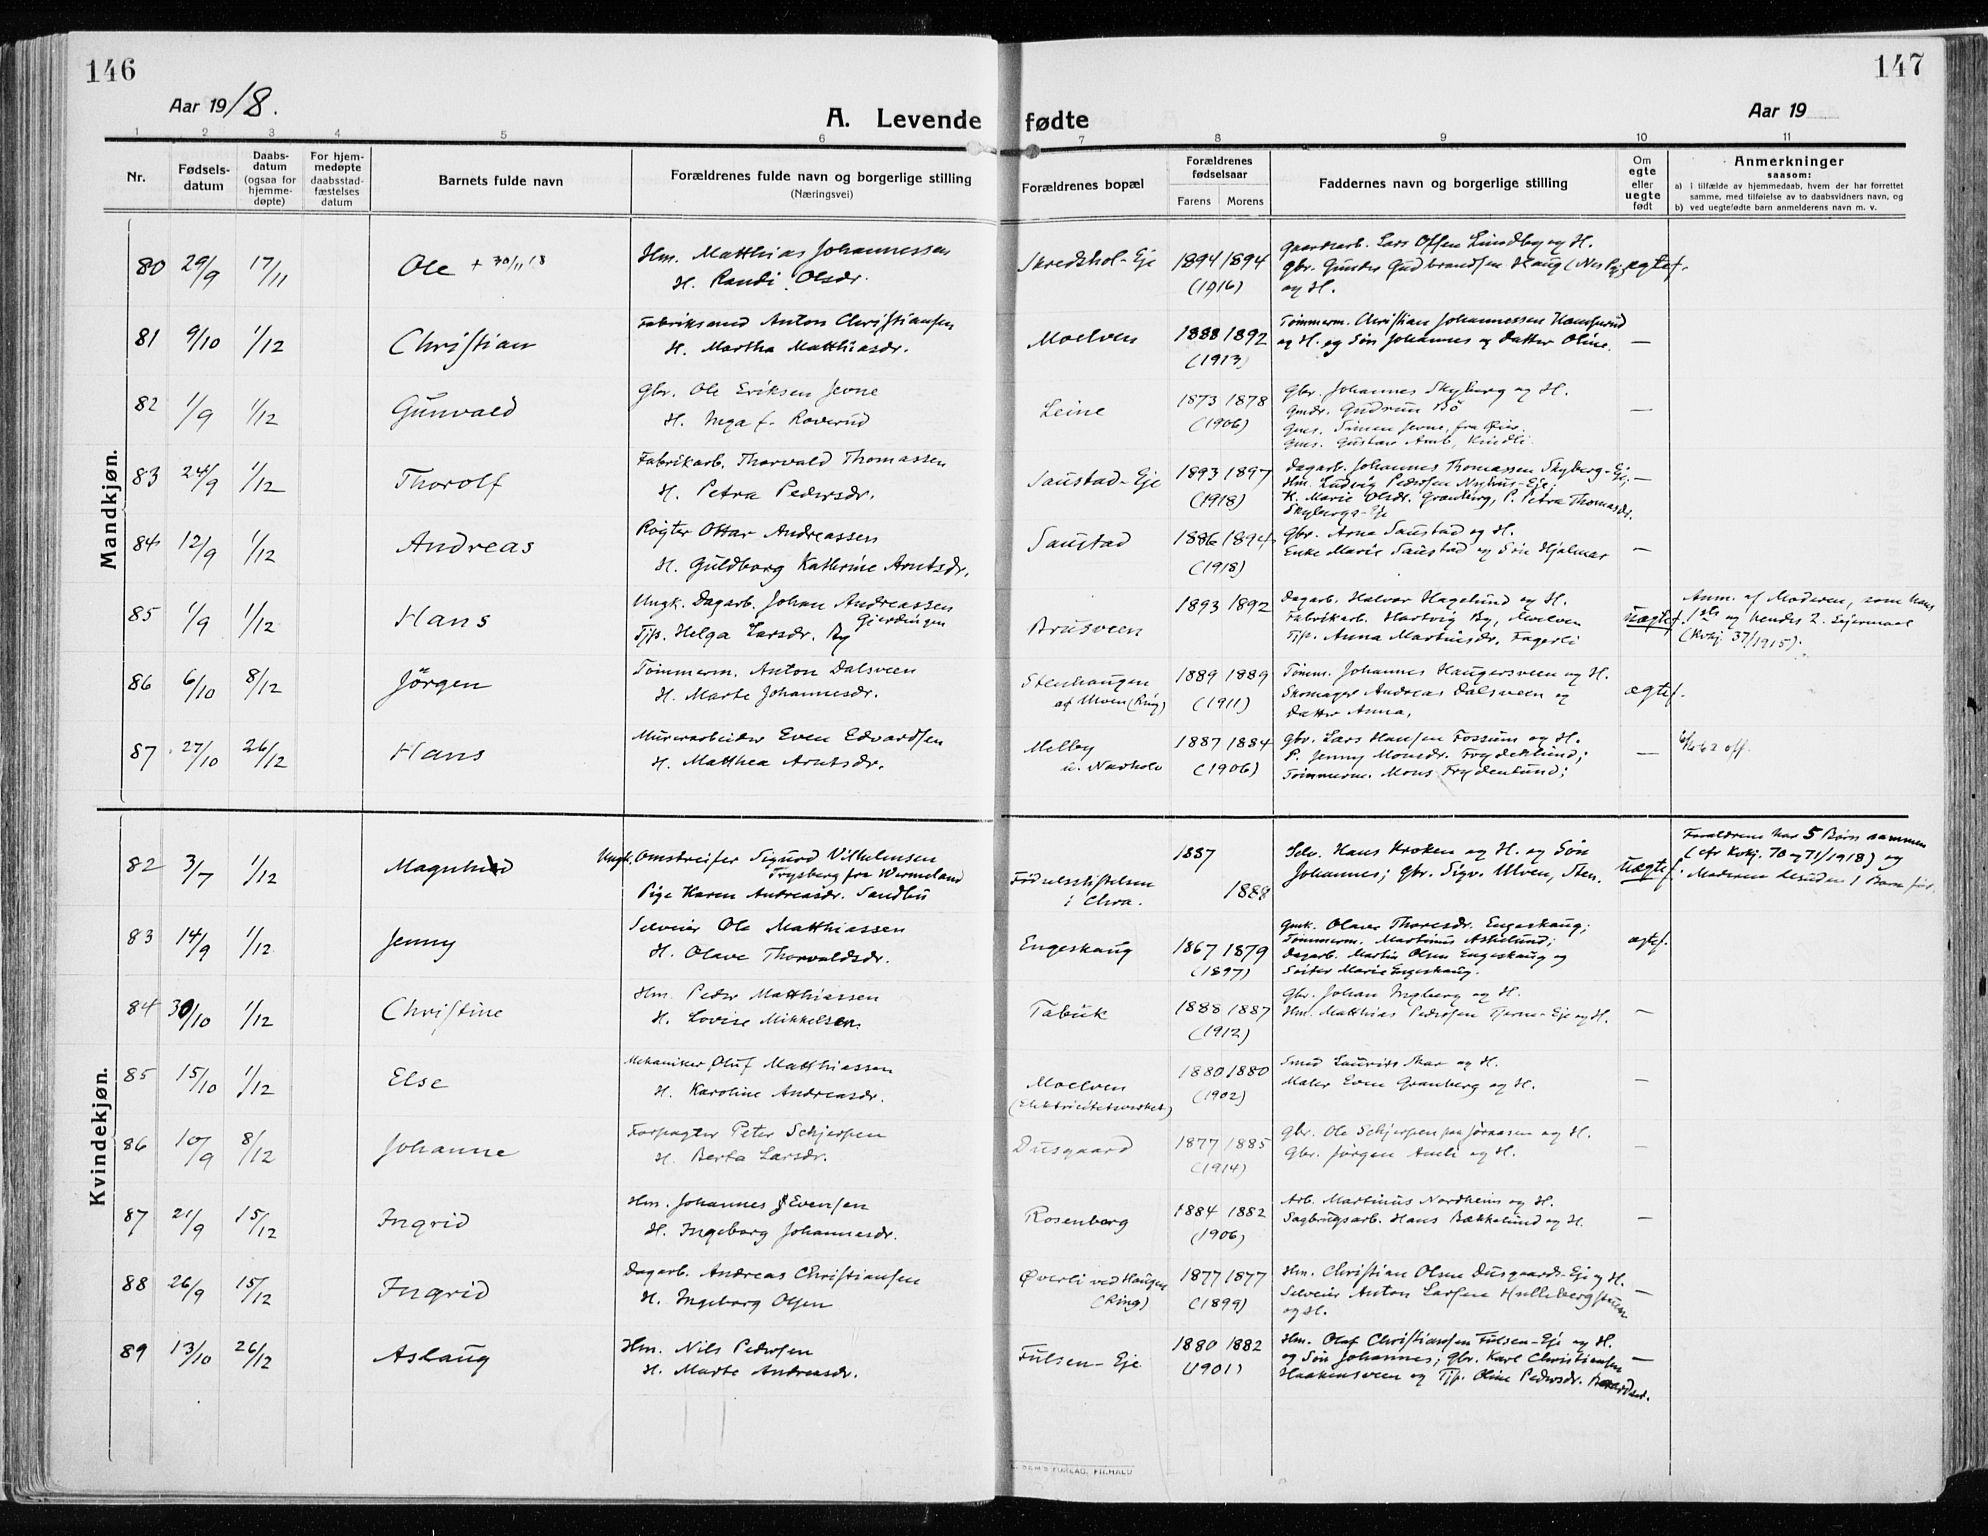 146
147
Aar 1918.
A. Levende fødte
Aar 19
1 2 3 4 5 6 7 8 9 10 11
Nr.
Fødsels-
datum
Daabs-
datum
(ogsaa for
hjemme-
døpte)
For hjem-
medøpte
daabsstad-
fæstelses
datum
Barnets fulde navn
Forældrenes fulde navn og borgerlige stilling
(Næringsvei)
Forældrenes bopæl
Forældrenes
fødselsaar
Farens Morens
Faddernes navn og borgerlige stilling
Om
egte
eller
uegte
født
Anmerkninger
saasom:
a) i tilfælde av hjemmedaab, hvem der har forrettet
samme, med tilføielse av to daabsvidners navn, og
b) ved uegtefødte barn anmelderens navn m. v.
Mandkjøn.
80 29/9 17/11 Ole + 30/11 18 Hm. Matthias Johannessen Skredshol-Eje 1894 1894 Gaardsarb. Lars Olsen Lundby og H.
H. Randi Olsdr. (1916) Gbr. Gunder Gudbrandsen Haug (Nes Pgj) egtef.
og H.
81 9/10 1/12 Christian Fabriksmed Anton Christiansen Moelven 1888 1892 Tømmerm. Christian Johannessen Hamsrud
H. Martha Matthiasdr. (1913) og H. og Søn Johannes og Datter Oline. —
82 1/9 1/12 Gunvald Gbr. Ole Eriksen Jevne Leine 1873 1878 Gbr. Johannes Skyberg og H.
H. Inga f. Roverud (1906) Gmdr. Gudrun Bø —
Gms. Simen Jevne, fra Øier.
Gms. Gustav Amb, Kindli
83 24/9 1/12 Thorolf Fabrikarb. Thorvald Thomassen Saustad-Eje 1893 1897 Dagarb. Johannes Thomassen Skyberg-Eje;
H. Petra Pedersdr. (1918) Hm. Ludvig Pedersen Nyhus-Eje; —
K. Marie Olsdr. Granberg, P. Petra Thomasdr.
Skybergs-Eje
84 12/9 1/12 Andreas Røgter Ottar Andreassen Saustad 1886 1894 Gbr. Arne Saustad og H.
H. Guldborg Kathrine Arntsdr. (1918) Enke Marie Saustad og Søn Hjalmar —
85 1/9 1/12 Hans Ungk. Dagarb. Johan Andreassen Gjerdingen Brusveen 1893 1892 Dagarb. Halvor Hagelund og H.
Tjp. Helga Larsdr. By Fabrikarb. Hartvig By, Moelven uegtef.
Tjp. Anna Martinsdr. Fagerli
Anm. af Moderen, som hans
1ste og hendes 2. Lejermaal
(Kvkj. 37/1915).
86 6/10 8/12 Jörgen Tømmerm. Anton Dalsveen Stenhaugen 1889 1889 Tømm. Johannes Haugersveen og H.
H. Marte Johannesdr. af Ulven (Ring) (1911) Skomager Andreas Dalsveen og egtef.
Datter Anna.
87 27/10 26/12 Hans Murerarbeider Even Edvardsen Melby 1887 1884 Gbr. Lars Hansen Fossum og H.
H. Matthea Arntsdr. (1906) P. Jenny Monsdr. Frydenlund; —
Tømmerm. Mons Frydenlund;
Kvindekjøn.
82 3/7 1/12 Magnhild Ungk. Omstreifer Sigurd Vilhelmsen Fødselsstiftelsen 1887 Selv. Hans Kroken og H. og Søn
Trysberg fra Wermeland i Chra. 1888 Johannes; Gbr. Sigv. Ulven, Sten. uegtef.
Pige Karen Andreasdr. Sandbu
Forældrene har 5 Børn sammen
(cfr Kvkj. 70 og 71/1918) og
Moderen desuden 1 Barn før.
83 14/9 1/12 Jenny Selveier Ole Matthiassen Engeskaug 1867 1879 Gmk. Olave Thoresdr. Engeskaug;
H. Olave Thorvaldsdr. (1897) Tømmerm. Martinus Askelund; egtef.
Dagarb. Martin Olsen Engeskaug og
Søster Marie Engeskaug.
84 30/10 1/12 Christine Hm. Peder Matthiassen Tabuk 1888 1887 Gbr. Johan Ingberg og H.
H. Lovise Mikkelsen (1912) Hm. Matthias Pedersen Tjerne-Eje og H. —
85 15/10 1/12 Else Mekaniker Oluf Matthiassen Moelven 1880 1880 Smed Laurits Skar og H.
H. Karoline Andreasdr. (Elektricitetsverket) (1902) Maler Even Granberg og H. —
86 10/9 8/12 Johanne Forpagter Peter Schjerpen Dusgaard 1877 1885 Gbr. Ole Schjerpen og H.
H. Berta Larsdr. (1914) Gbr. Jørgen Amli og H. —
87 21/9 15/12 Ingrid Hm. Johannes Evensen Rosenborg 1884 1882 Arb. Martinus Nordheim og H.
H. Ingeborg Johannesdr. (1906) Sagbrugsarb. Hans Bækkelund og H. —
88 26/9 15/12 Ingrid Dagarb. Andreas Christiansen Øverli ved Haugen 1877 1877 Hm. Christian Olsen Dusgaards-Eje og H.
H. Ingeborg Olsen (Ring) (1899) Selveier Anton Larsen Hullebergstuen —
og H.
89 13/10 26/12 Aslaug Hm. Nils Pedersen Fulsen-Eje 1880 1882 Hm. Olaf Christiansen Fulsen-Eje og H.
H. Marte Andreasdr. (1901) og Søn Johannes; Gbr. Karl Christiansen —
Haakensveen og Tjp. Oline Pedersdr.